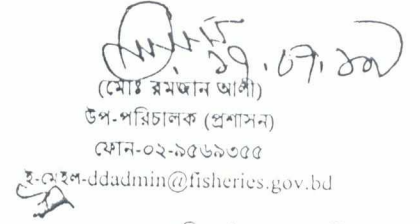 (মোঃ রমজান আলী)
উপ-পরিচালক (প্রশাসন)
ফোন-০২-৯৫৬৯৩৫৫
ই-মেইল-ddadmin@fisheries.gov.bd